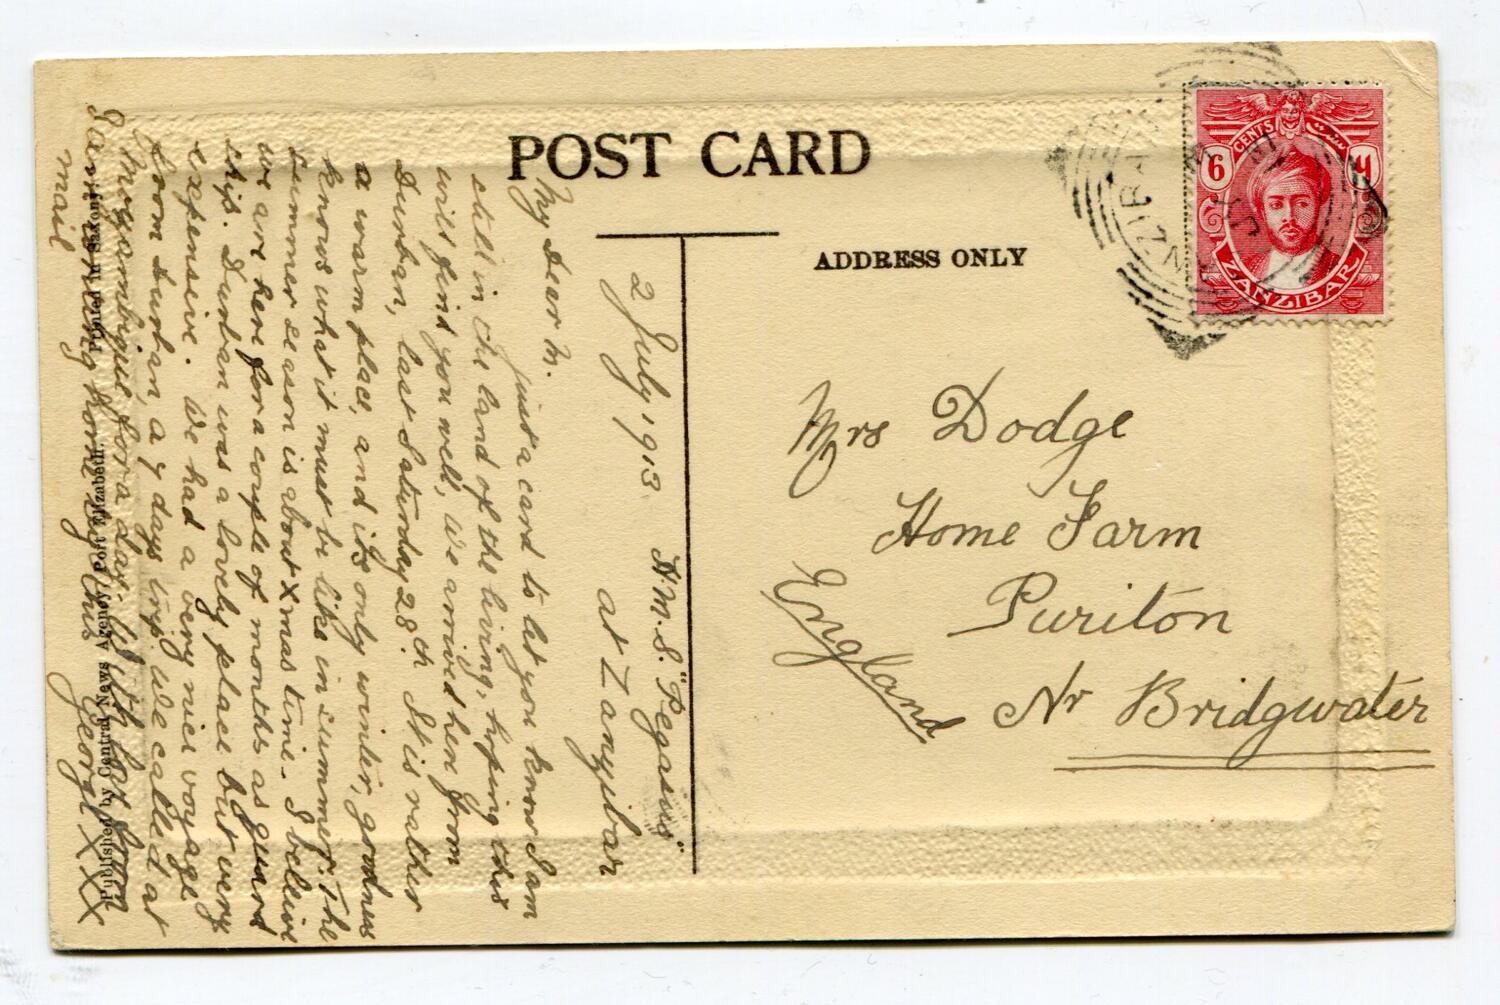 POST CARD
ADDRESS ONLY
6 CENTS
ZANZIBAR
Mrs Dodge
Home Farm
Puriton
Nr Bridgwater
England
H.M.S. "Pegasus"
at Zanzibar
2 July 1913
My Dear M.
just a card to let you know I am
still in the land of the living, hoping this
will find you well, we arrived here from
Durban, last Saturday 28th. It is rather
a warm place, and its only winter, goodness
knows what it must be like in summer. The
summer season is about Xmas time. I believe
we are here for a couple of months as guard
ship. Durban was a lovely place but very
expensive. We had a very nice voyage
from Durban, a 7 days trip. We called at
Mozambique for a day. With best
I am writing home by this
mail
George XXX
Published by Central News Agency, Port Elizabeth. Printed in Saxony.